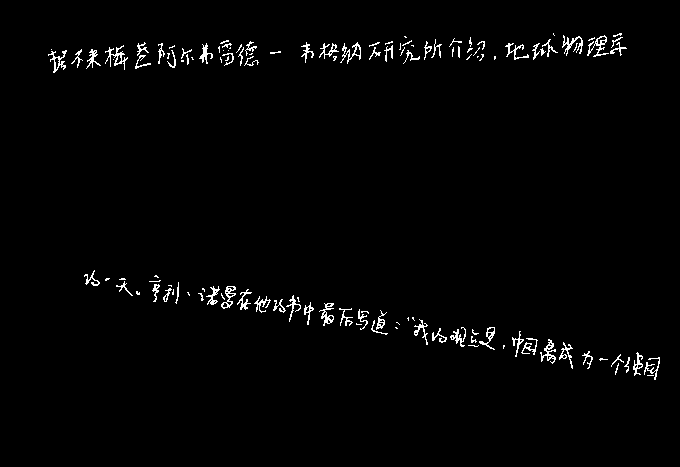 据不来梅哈阿尔弗雷德一韦格纳研究所介绍,地球物理学
的一天。亨利·诺曼在他的书中最后写道:“我的观点是,中国离成为一个强国